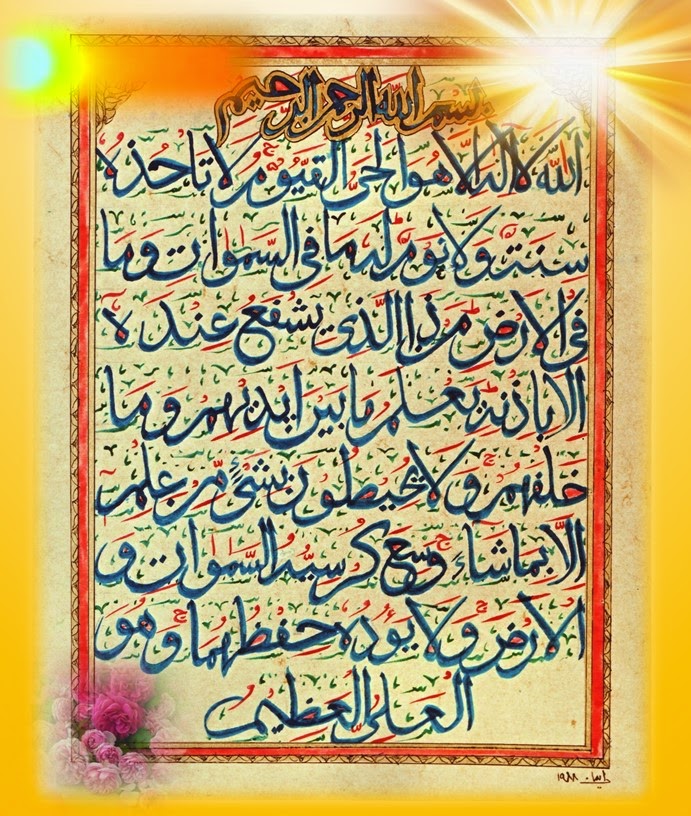 بسم الله الرحمن الرحيم
الله لا اله الا هو الحي القيوم لا تاخذه
سنة ولا نوم له ما في السموات وما
في الارض من ذا الذي يشفع عنده
الا باذنه يعلم ما بين ايديهم وما
خلفهم ولا يحيطون بشيء من علمه
الا بما شاء وسع كرسيه السموات و
الارض ولا يؤده حفظهما وهو
العلي العظيم
١٩٨٨